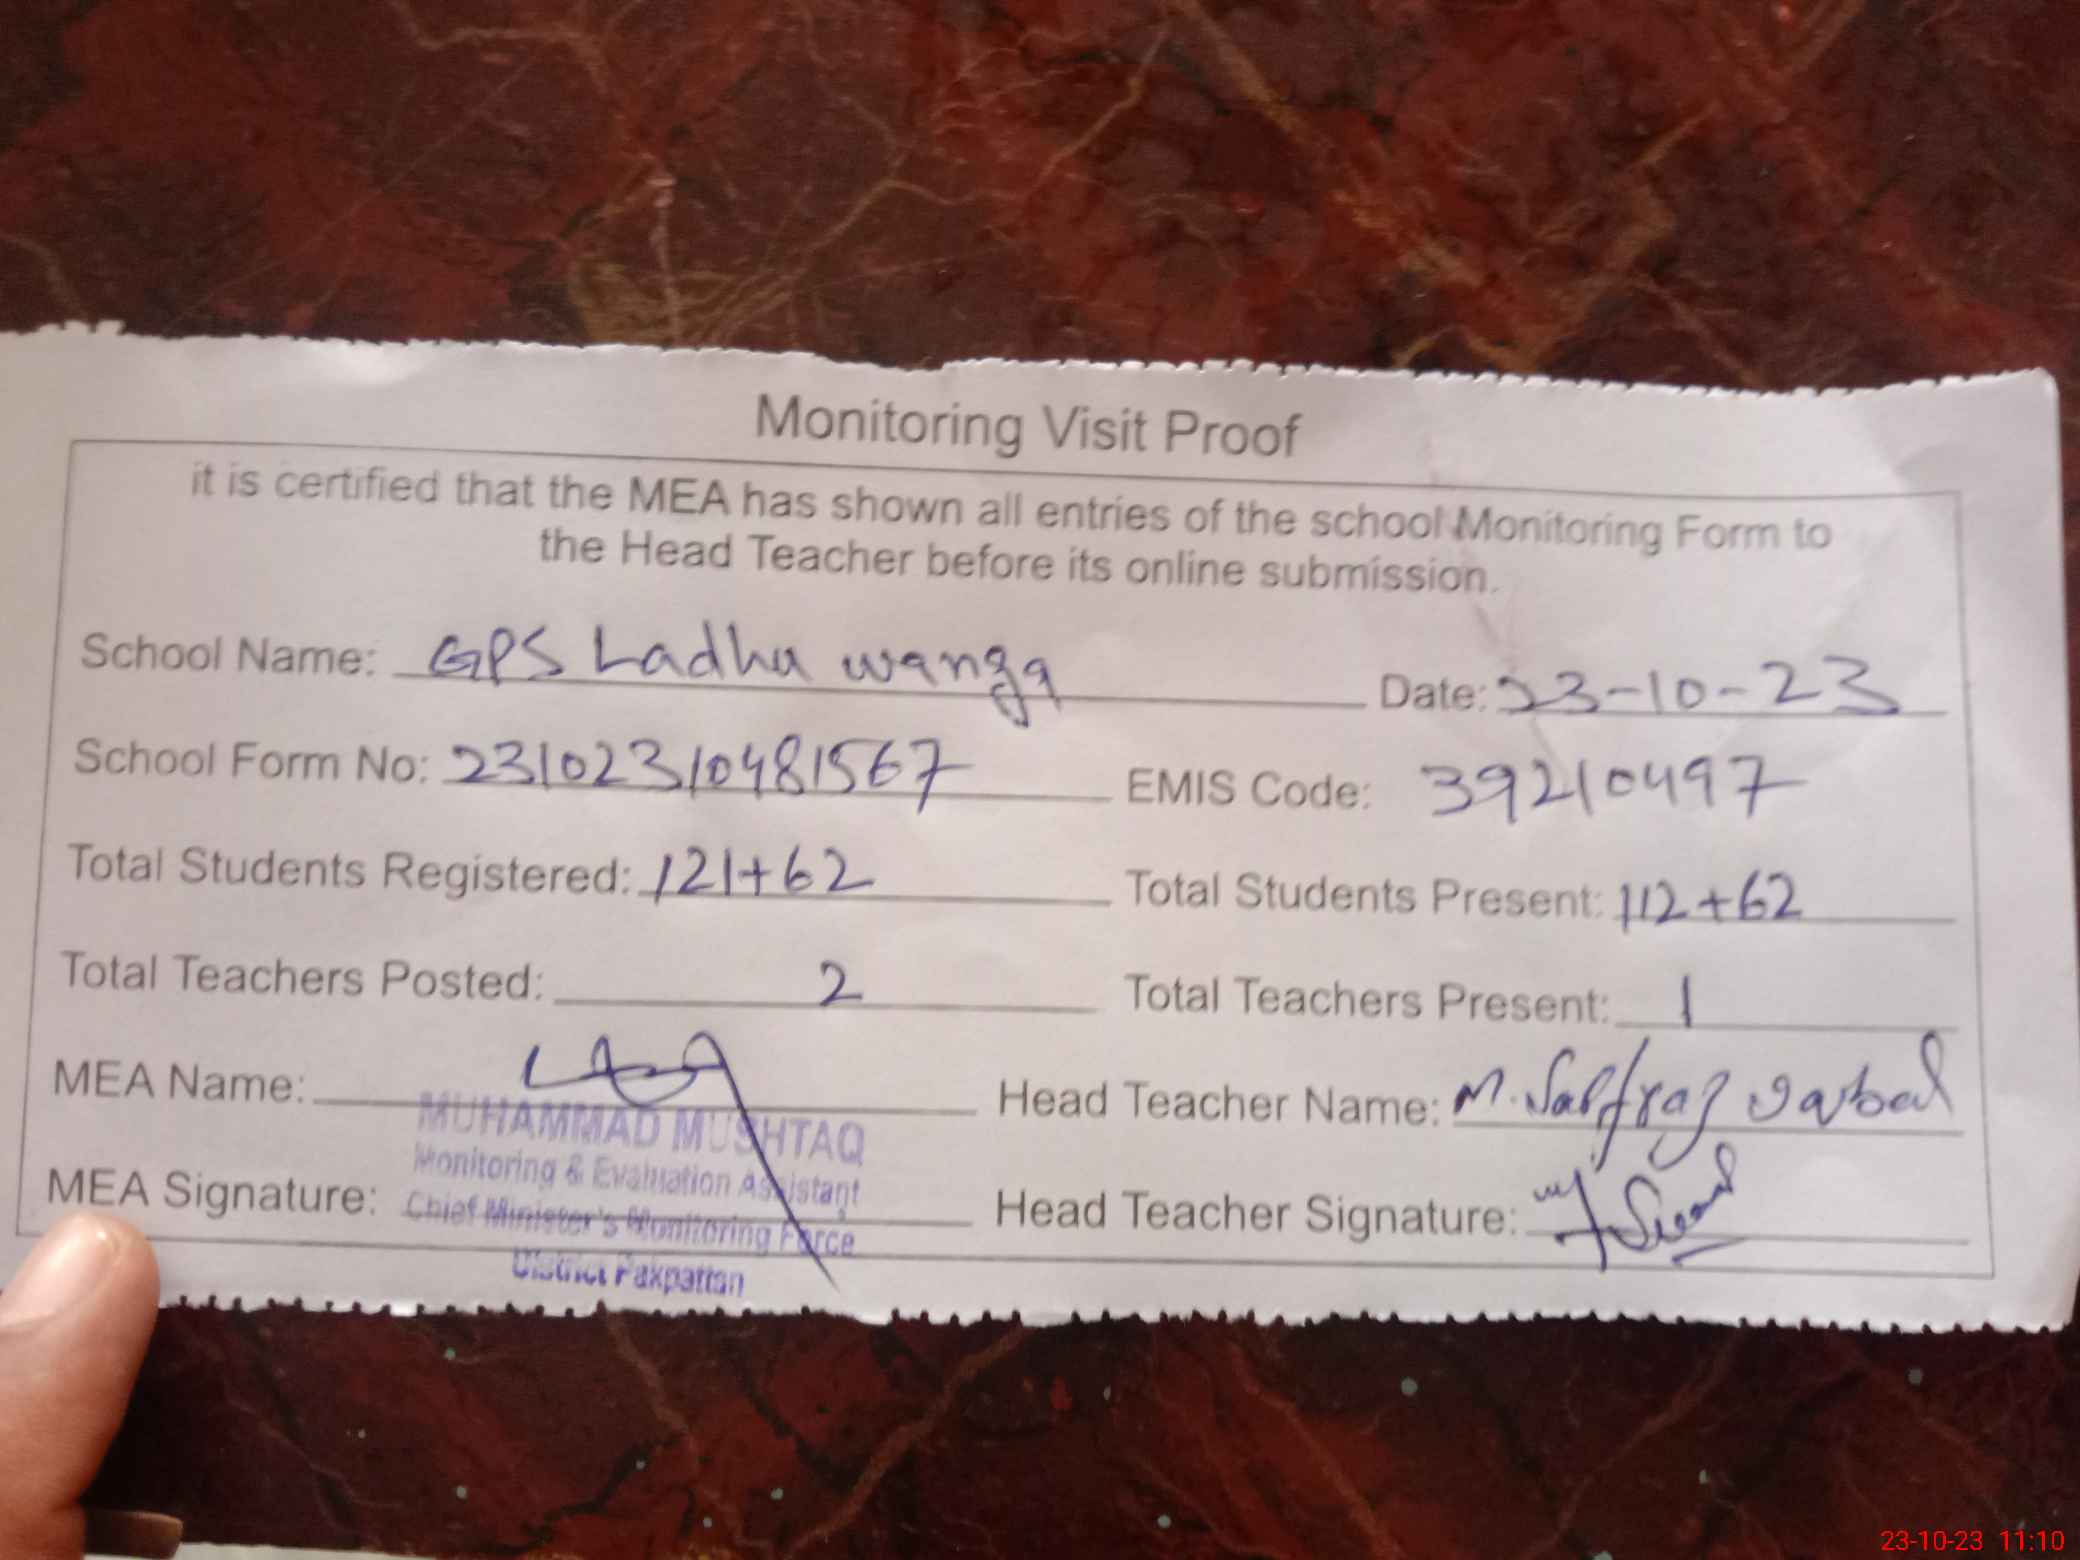 Monitoring Visit Proof
it is certified that the MEA has shown all entries of the school Monitoring Form to
the Head Teacher before its online submission.
School Name: GPS Ladhu wanga Date: 23-10-23
School Form No: 23102310481567 EMIS Code: 39210497
Total Students Registered: 121+62 Total Students Present: 112+62
Total Teachers Posted: 2 Total Teachers Present: 1
MEA Name: Head Teacher Name: M. Sarfraz Iqbal
MUHAMMAD MUSHTAQ
Monitoring & Evaluation Assistant
MEA Signature: Head Teacher Signature:
Chief Minister's Monitoring Force
District Pakpattan
23-10-23 11:10